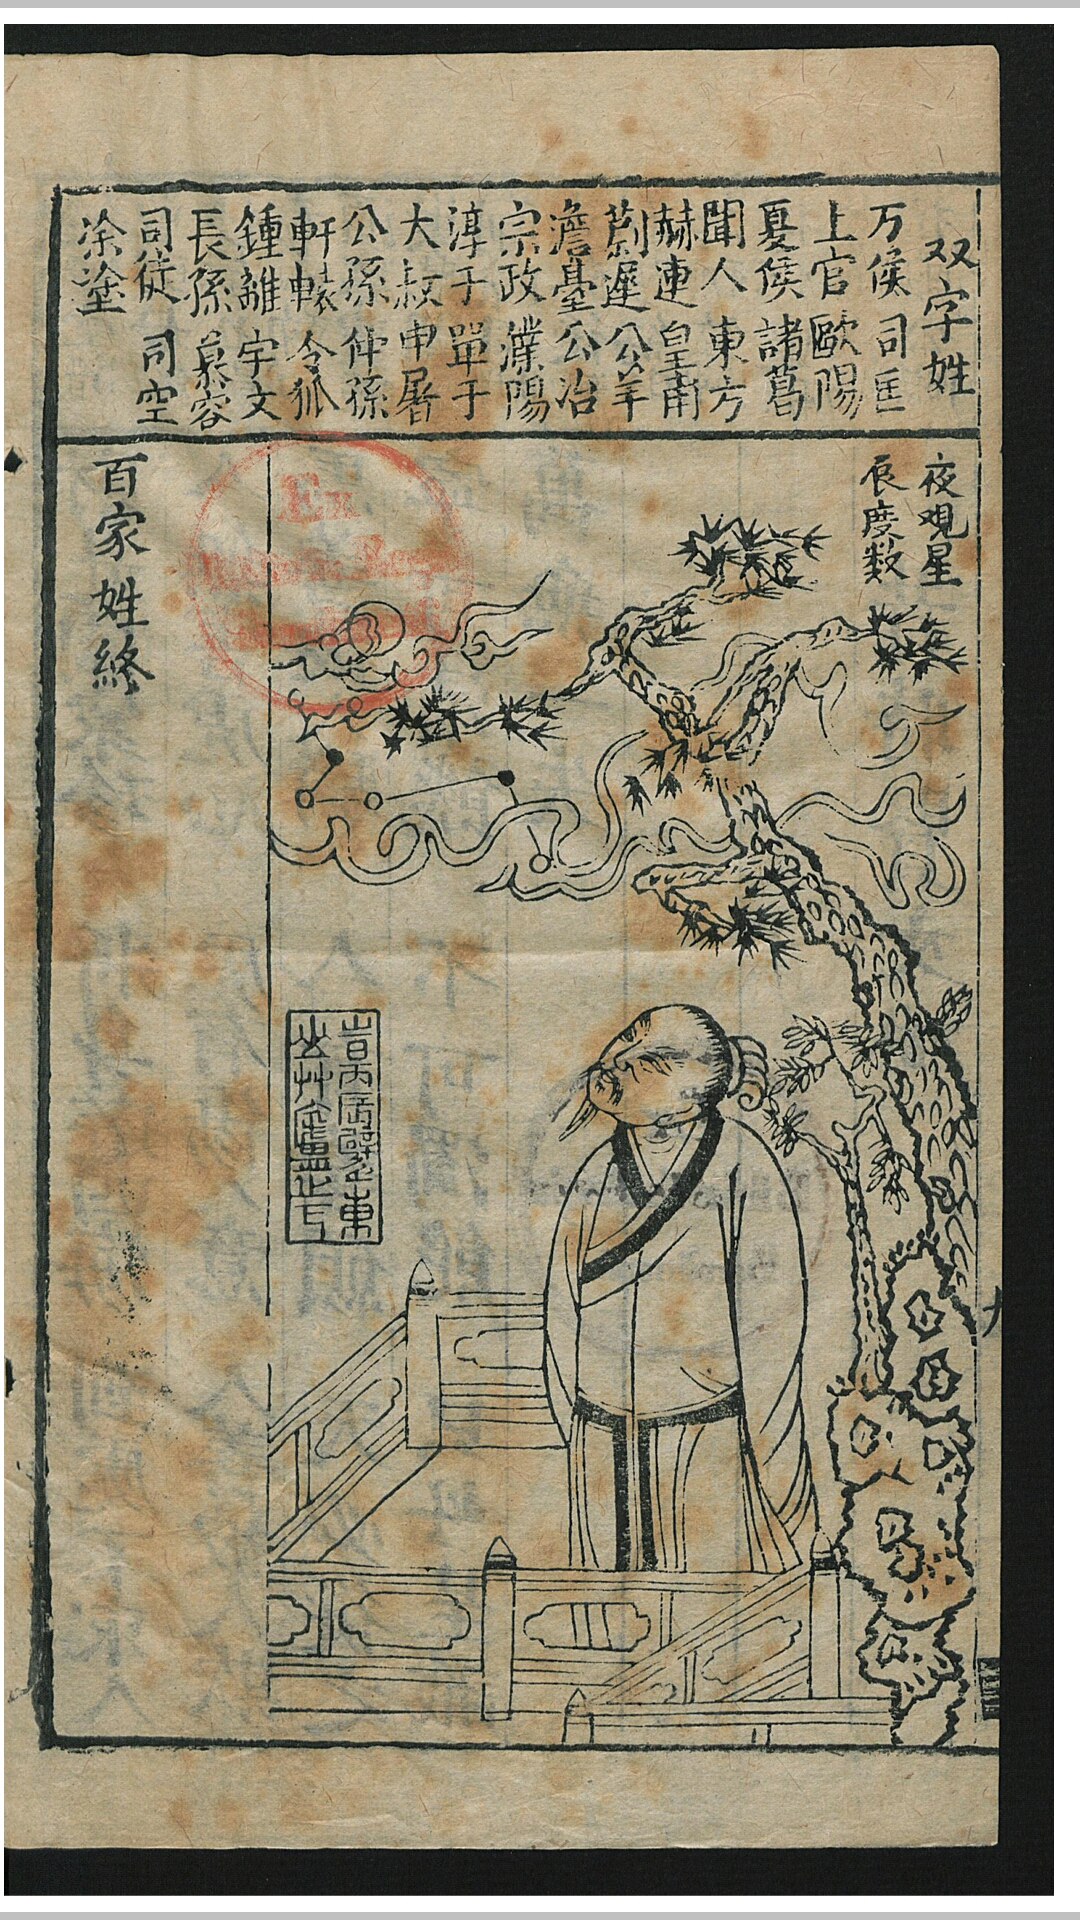 双字姓
万俟 司匡
上官 歐陽
夏侯 諸葛
聞人 東方
赫連 皇甫
尉遲 公羊
澹臺 公冶
宗政 濮陽
淳于 單于
大叔 申屠
公孫 仲孫
軒轅 令狐
鍾離 宇文
長孫 慕容
司徒 司空
涂塗
夜觀星
辰度数
百家姓終
Ex